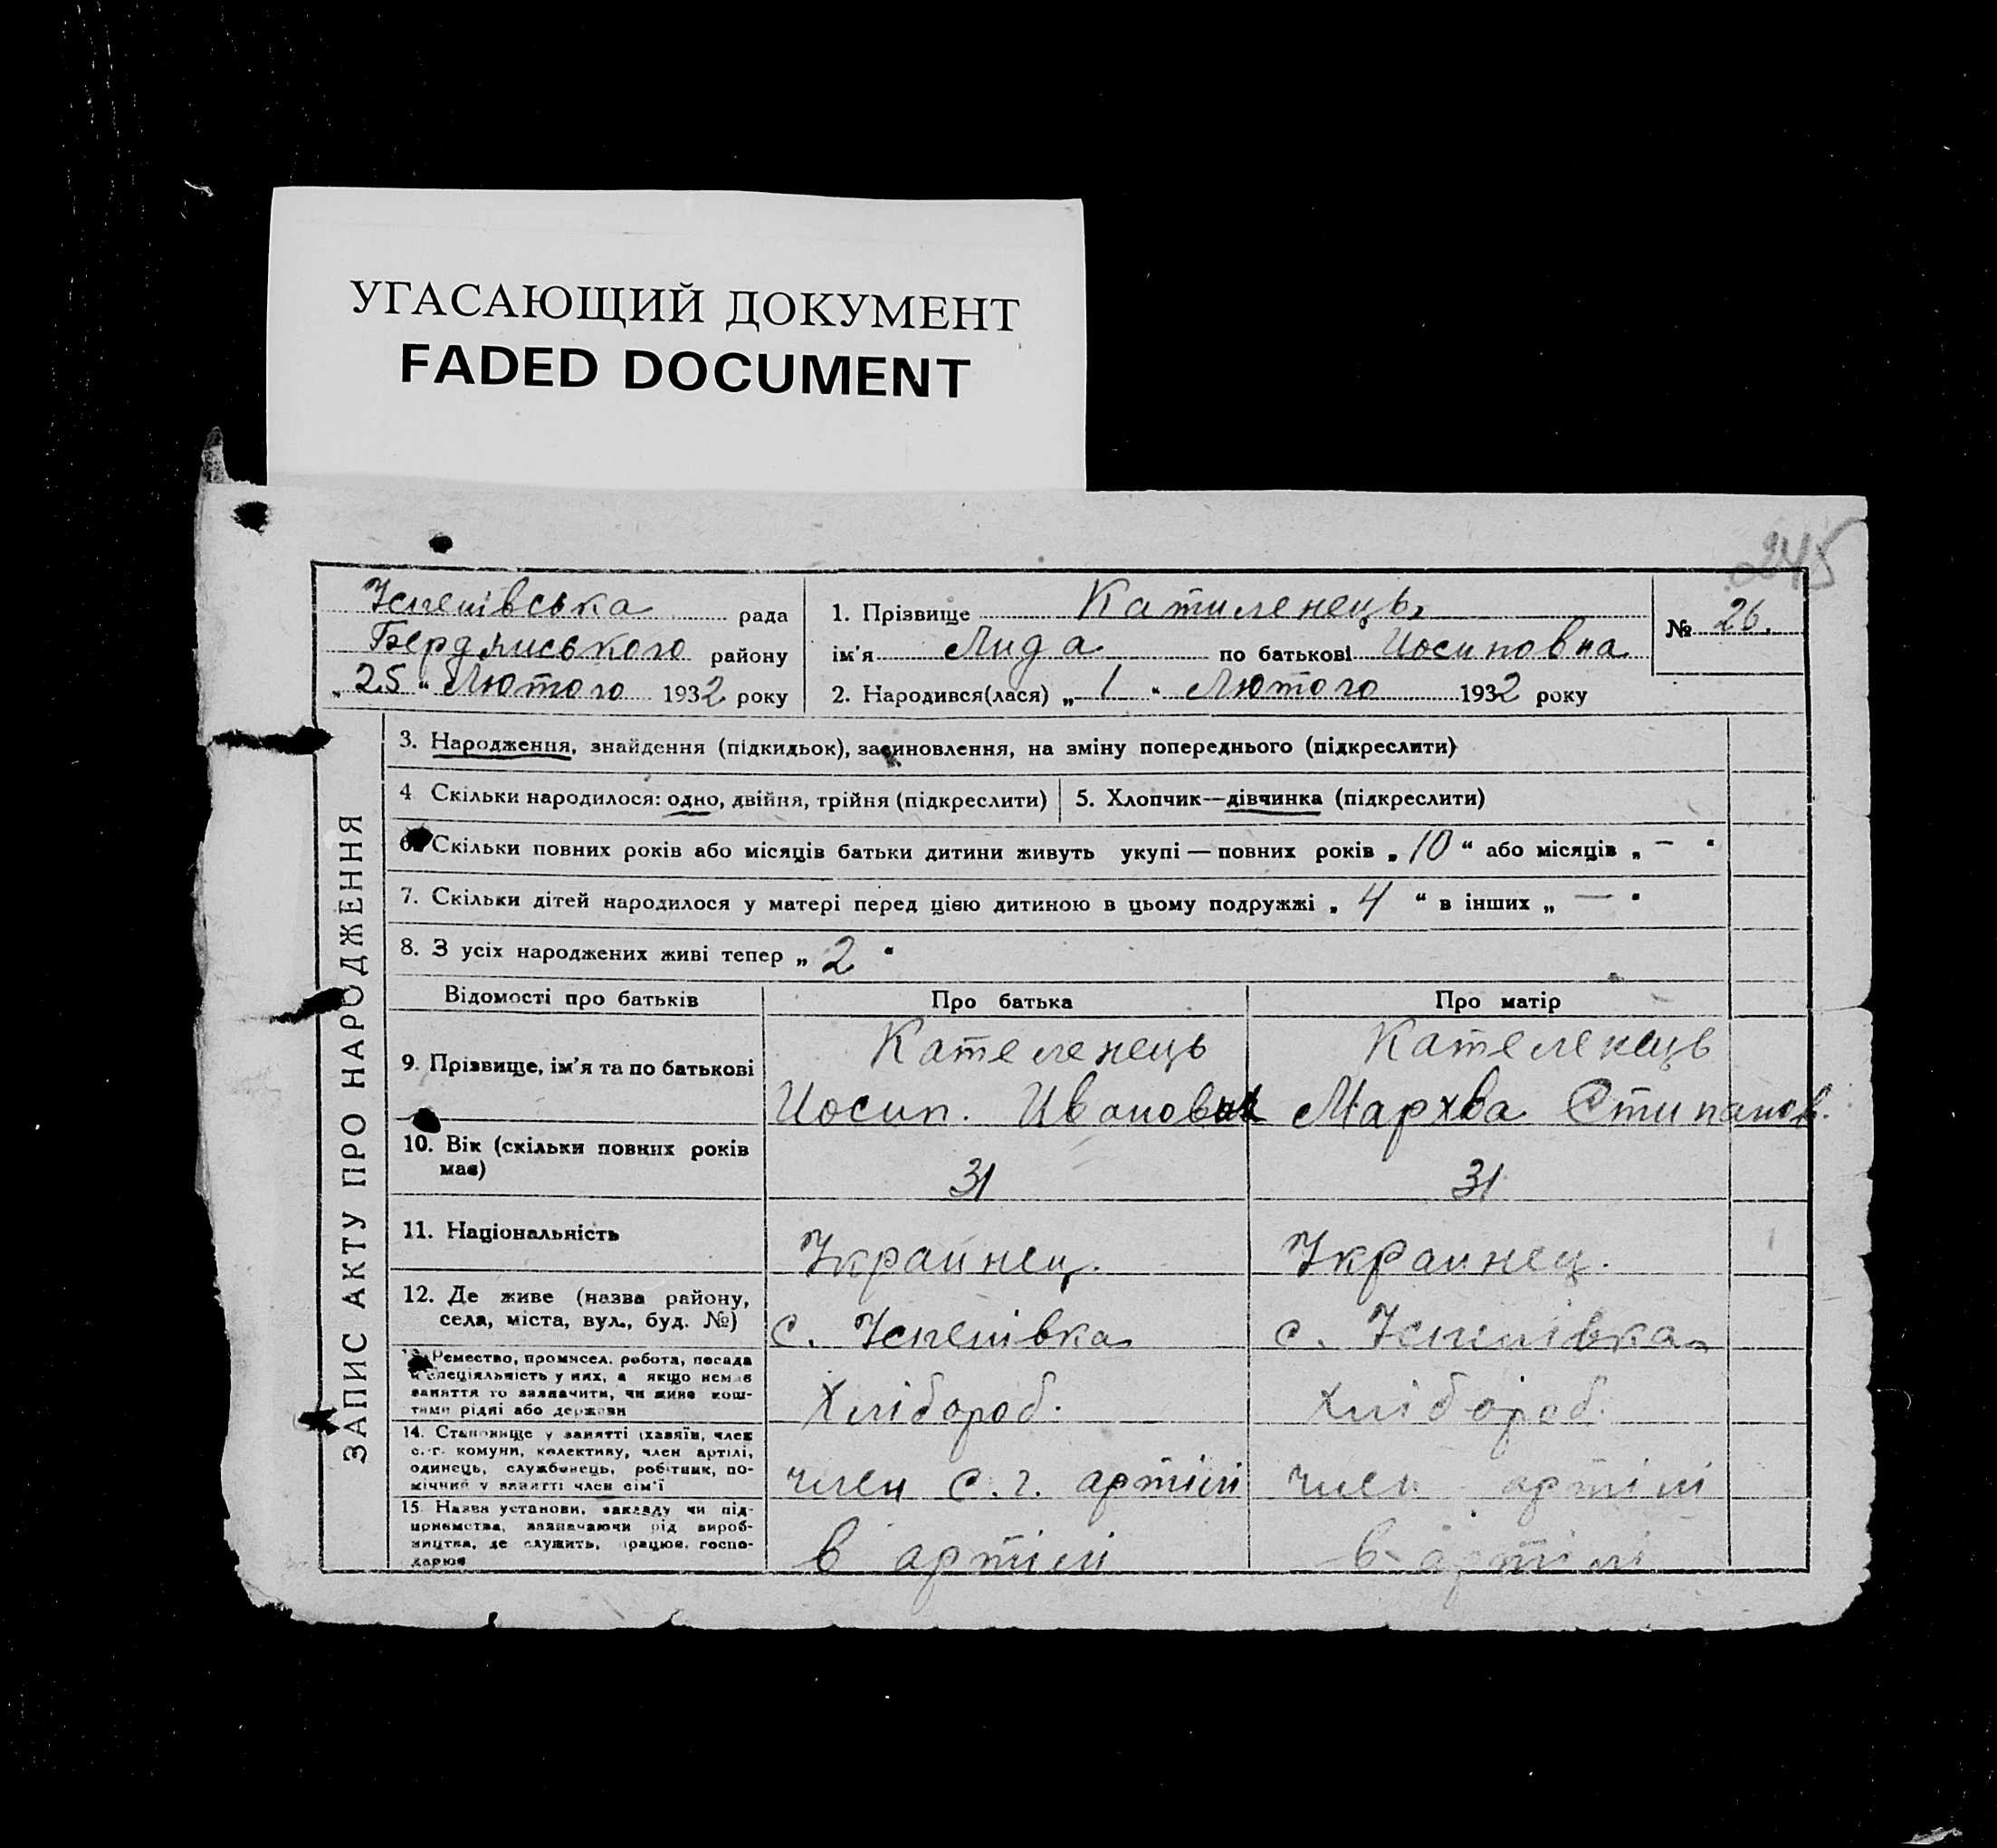 УГАСАЮЩИЙ ДОКУМЕНТ
FADED DOCUMENT
245
Успенівська рада
Бердянського району
„25“ Лютого 1932 року
1. Прізвище Катиленець,
ім'я Лида по батькові Иосиповна
2. Народився(лася) „1“ Лютого 1932 року
№ 26.
ЗАПИС АКТУ ПРО НАРОДЖЕННЯ
3. Народження, знайдення (підкидьок), засиновлення, на зміну попереднього (підкреслити)
4 Скільки народилося: одно, двійня, трійня (підкреслити)
5. Хлопчик—дівчинка (підкреслити)
6. Скільки повних років або місяців батьки дитини живуть укупі — повних років „10“ або місяців „—“
7. Скільки дітей народилося у матері перед цією дитиною в цьому подружжі „4“ в інших „—“
8. З усіх народжених живі тепер „2“
Відомості про батьків Про батька Про матір
9. Прізвище, ім'я та по батькові
Кателенець
Иосип. Иванович
Кателенець
Мархва Стипанов.
10. Вік (скільки повних років має)
31
31
11. Національність
Украинец.
Украинец.
12. Де живе (назва району, села, міста, вул., буд. №)
с. Успенівка
с. Успенівка
13. Ремество, промисел. робота, посада
й спеціяльність у них, а якщо немає
заняття то зазначити, чи живе кош-
тами рідні або держави
Хлібороб.
Хлібороб.
14. Становище у занятті (хазяїн, член
с.-г. комуни, колективу, член артілі,
одинець, службовець, робітник, по-
мічний у занятті член сім'ї
член с.г. артілі
член артілі
15. Назва установи, закладу чи під-
приємства, зазначаючи рід вироб-
ництва, де служить, працює, госпо-
дарює
в артілі
в артілі